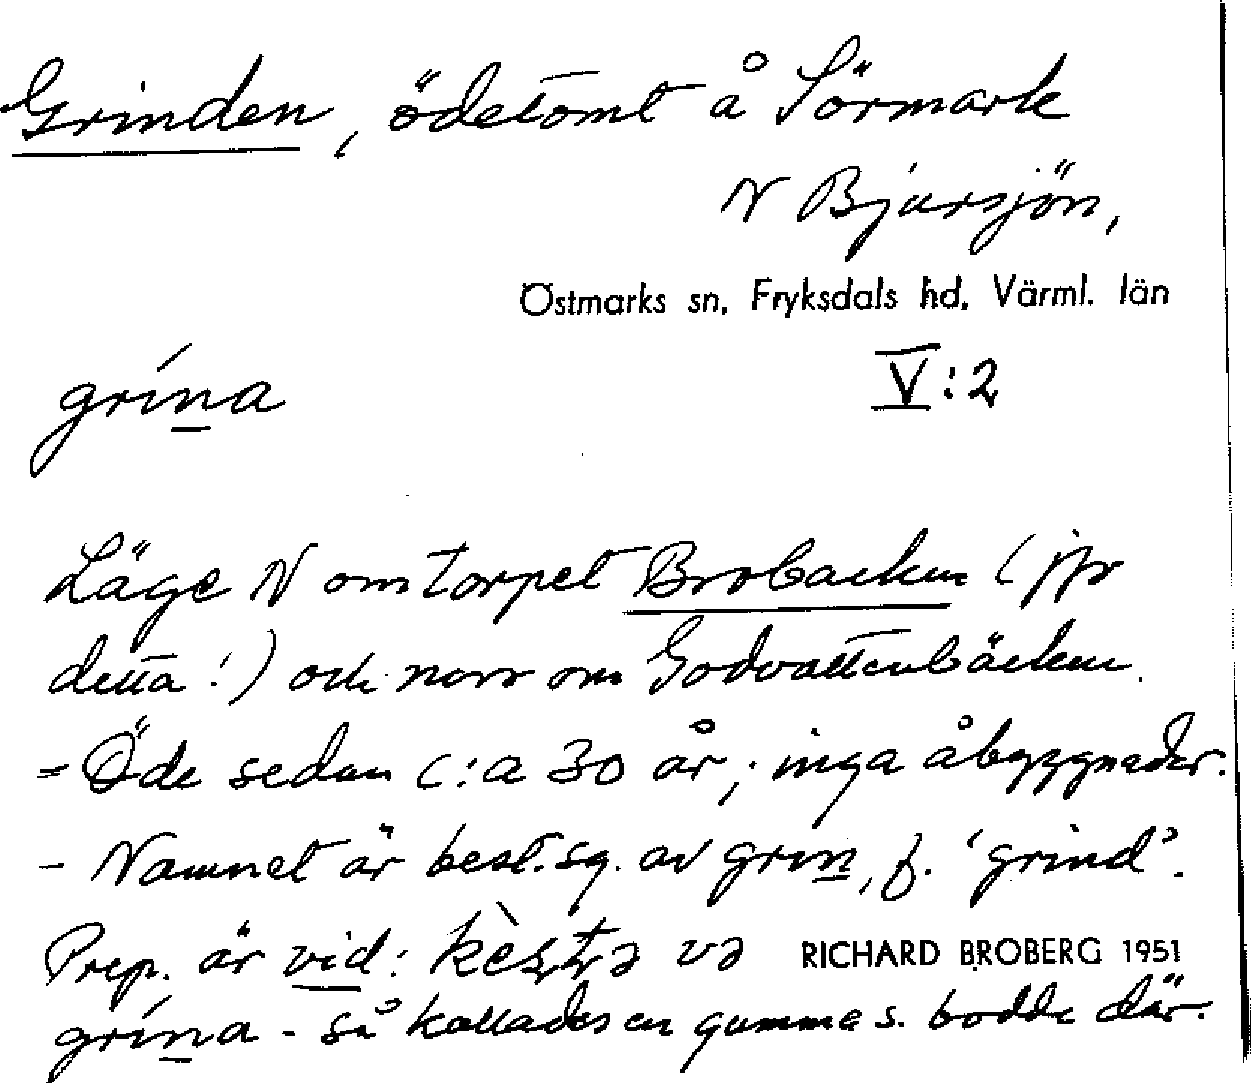 Grinden, ödetomt å Sörmark
N Bjursjön,
Östmarks sn, Fryksdals hd, Värml. län
grína V:2
Läge N om torpet Brobacken (jfr
detta!) och norr om Godvattenbäcken.
= Öde sedan c:a 30 år; inga åbyggnader.
- Namnet är best. sg. av grin, f. 'grind'.
Prep. är vid: kèstə və RICHARD BROBERG 1951
grína - så kallades en gumma s. bodde där.